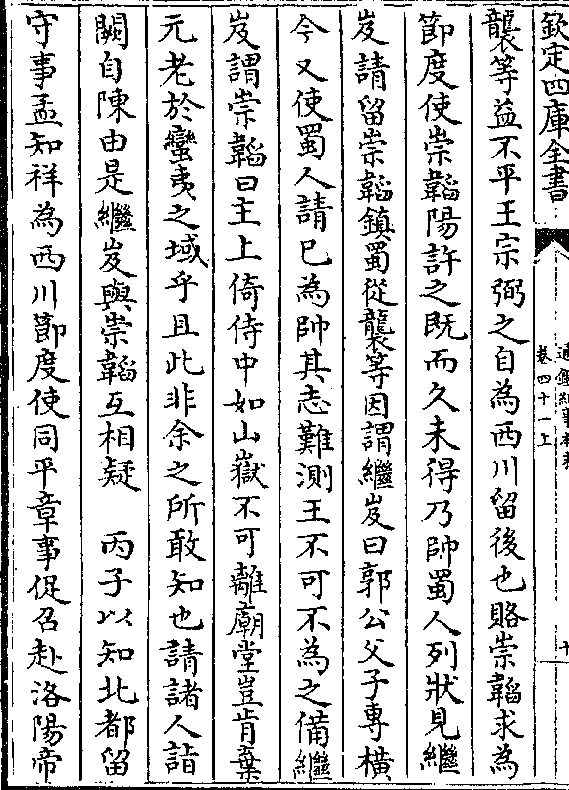 欽定四庫全書
通鑑紀事本末
卷四十一上
襲等益不平王宗弼之自為西川留後也賂崇韜求為
節度使崇韜陽許之既而久未得乃帥蜀人列狀見繼
岌請留崇韜鎮蜀從襲等因謂繼岌曰郭公父子專橫
今又使蜀人請已為帥其志難測王不可不為之備繼
岌謂崇韜曰主上倚侍中如山嶽不可離廟堂豈肯棄
元老於蠻夷之域乎且此非余之所敢知也請諸人詣
闕自陳由是繼岌與崇韜互相疑　丙子以知北都留
守事孟知祥為西川節度使同平章事促召赴洛陽帝